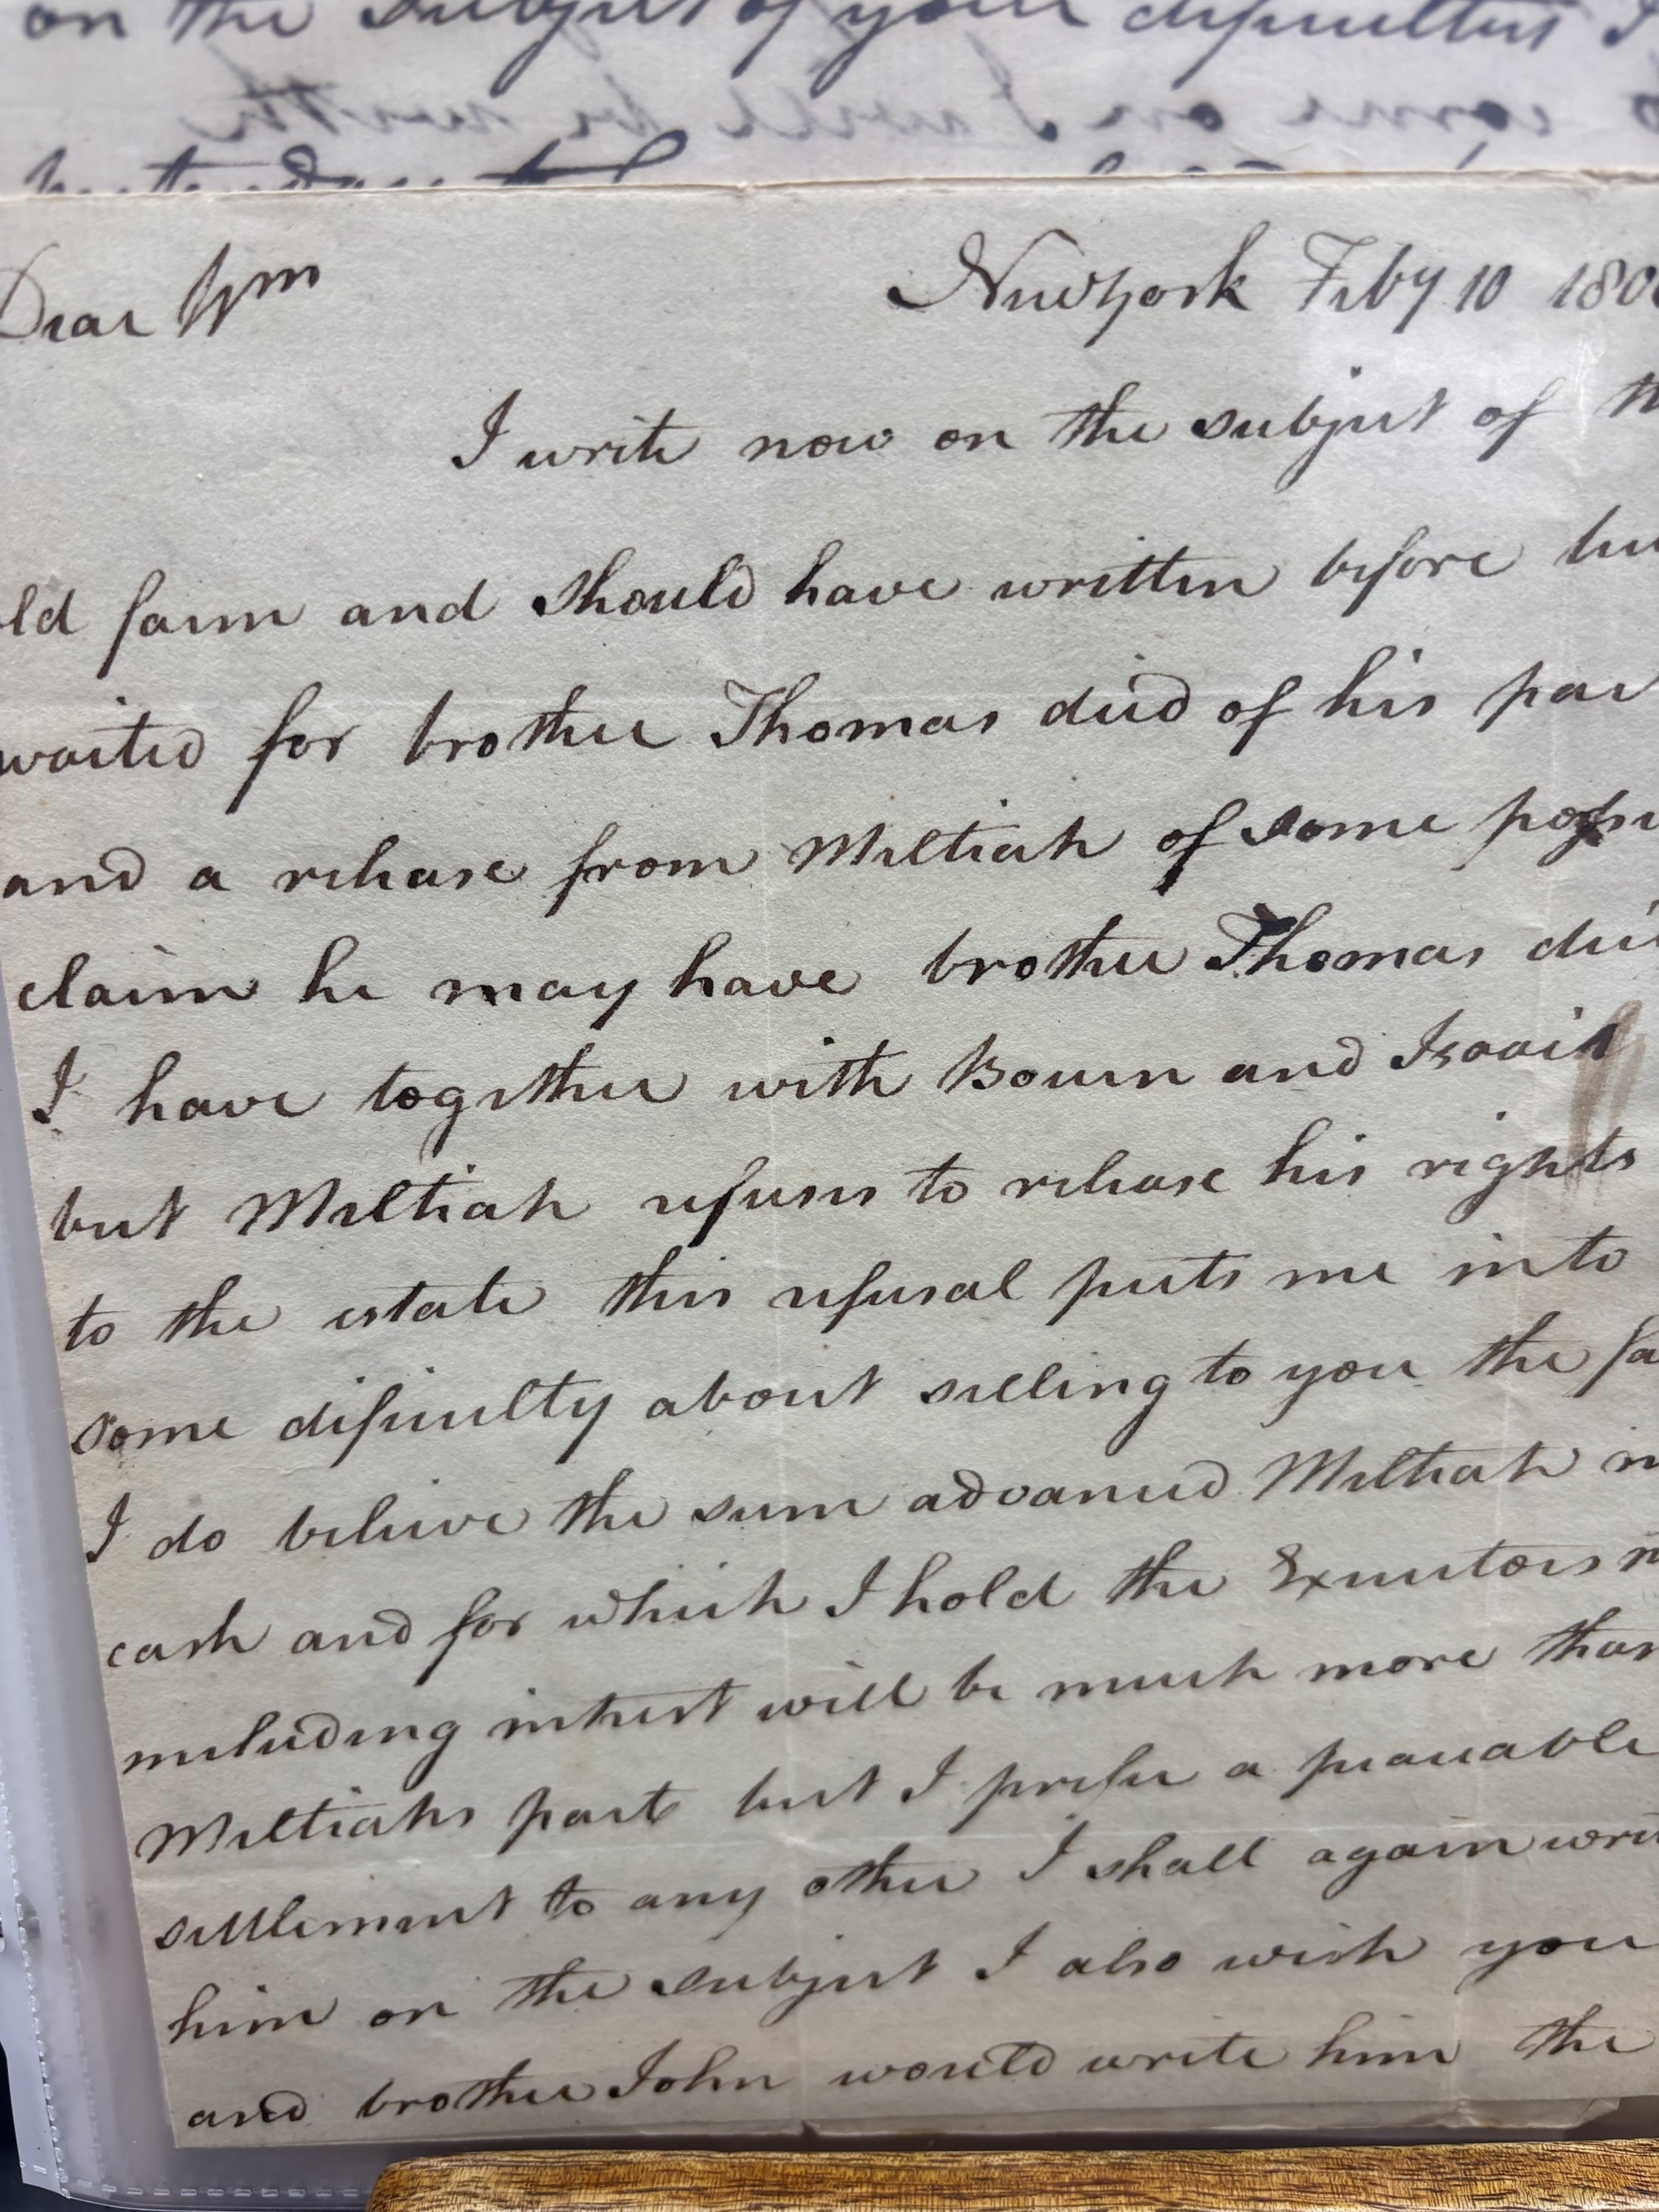 on the subject of your difficulties I
come on I will be worth
Dear Wm
Newyork Feby 10 180
I write now on the subject of th
ld farm and should have written before bu
waited for brother Thomas deed of his par
and a release from Meltiah of some
claim he may have brother Thomas dee
I have together with Bourn and Isaais
but Meltiah refuses to release his rights
to the estate this refusal puts me into
some dificulty about selling to you the fa
I do believe the sum advanced Meltiah in
cash and for which I hold the Executors n
including interest will be much more than
Meltiahs part but I prefer a peaceable
settlement to any other I shall again wri
him on the subject I also wish you
and brother John would write him the